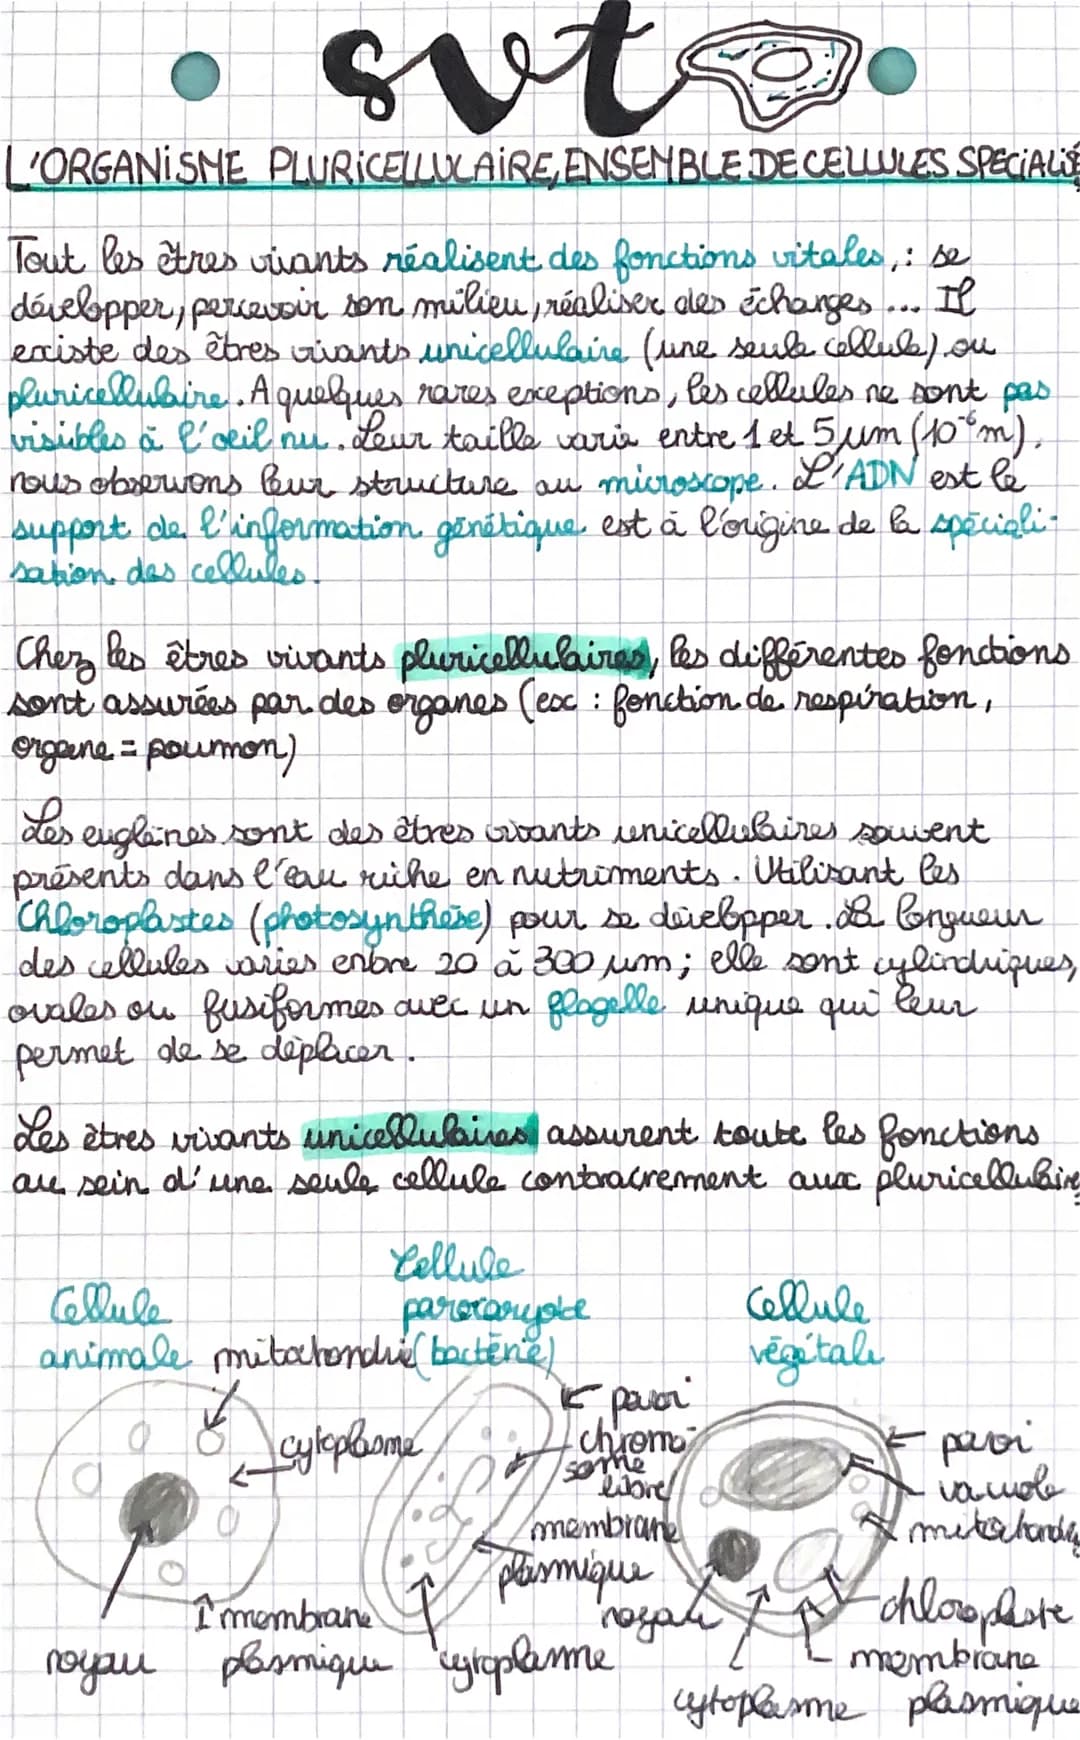 svt
L'ORGANISME PLURICELLULAIRE, ENSEMBLE DE CELLULES SPECIALISÉ
Tout les êtres vivants réalisent des fonctions vitales,: se
développer, percevoir son milieu, réaliser des échanges ... Il
existe des êtres vivants unicellulaire (une seule cellule) ou
pluricellulaire. A quelques rares exceptions, les cellules ne sont pas
visibles à l'oeil nu. Leur taille varie entre 1 et 5 μm (10⁻⁶m).
nous observons leur structure au microscope. L'ADN est le
support de l'information génétique est à l'origine de la spéciali-
sation des cellules.
Chez les êtres vivants pluricellulaires, les différentes fonctions
sont assurées par des organes (ex : fonction de respiration,
organe = poumon)
Les euglènes sont des êtres vivants unicellulaires souvent
présents dans l'eau riche en nutriments. Utilisant les
Chloroplastes (photosynthèse) pour se développer. La longueur
des cellules varies entre 20 à 300 μm; elle sont cylindriques,
ovales ou fusiformes avec un flagelle unique qui leur
permet de se déplacer.
Les êtres vivants unicellulaires assurent toute les fonctions
au sein d'une seule cellule contracrement aux pluricellulaires
Cellule
animale
mitochondrie
cytoplasme
noyau
membrane
plasmique
Cellule
parocaryote
(bactérie)
paroi
chromo-
some
libre
membrane
plasmique
cytoplasme
Cellule
végétale
paroi
vacuole
mitochondrie
chloroplaste
membrane
plasmique
noyau
cytoplasme